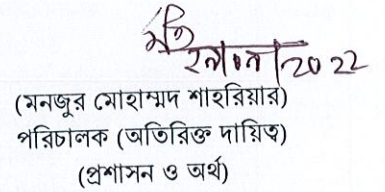 ২৯/০৯/2022
(মনজুর মোহাম্মদ শাহরিয়ার)
পরিচালক (অতিরিক্ত দায়িত্ব)
(প্রশাসন ও অর্থ)